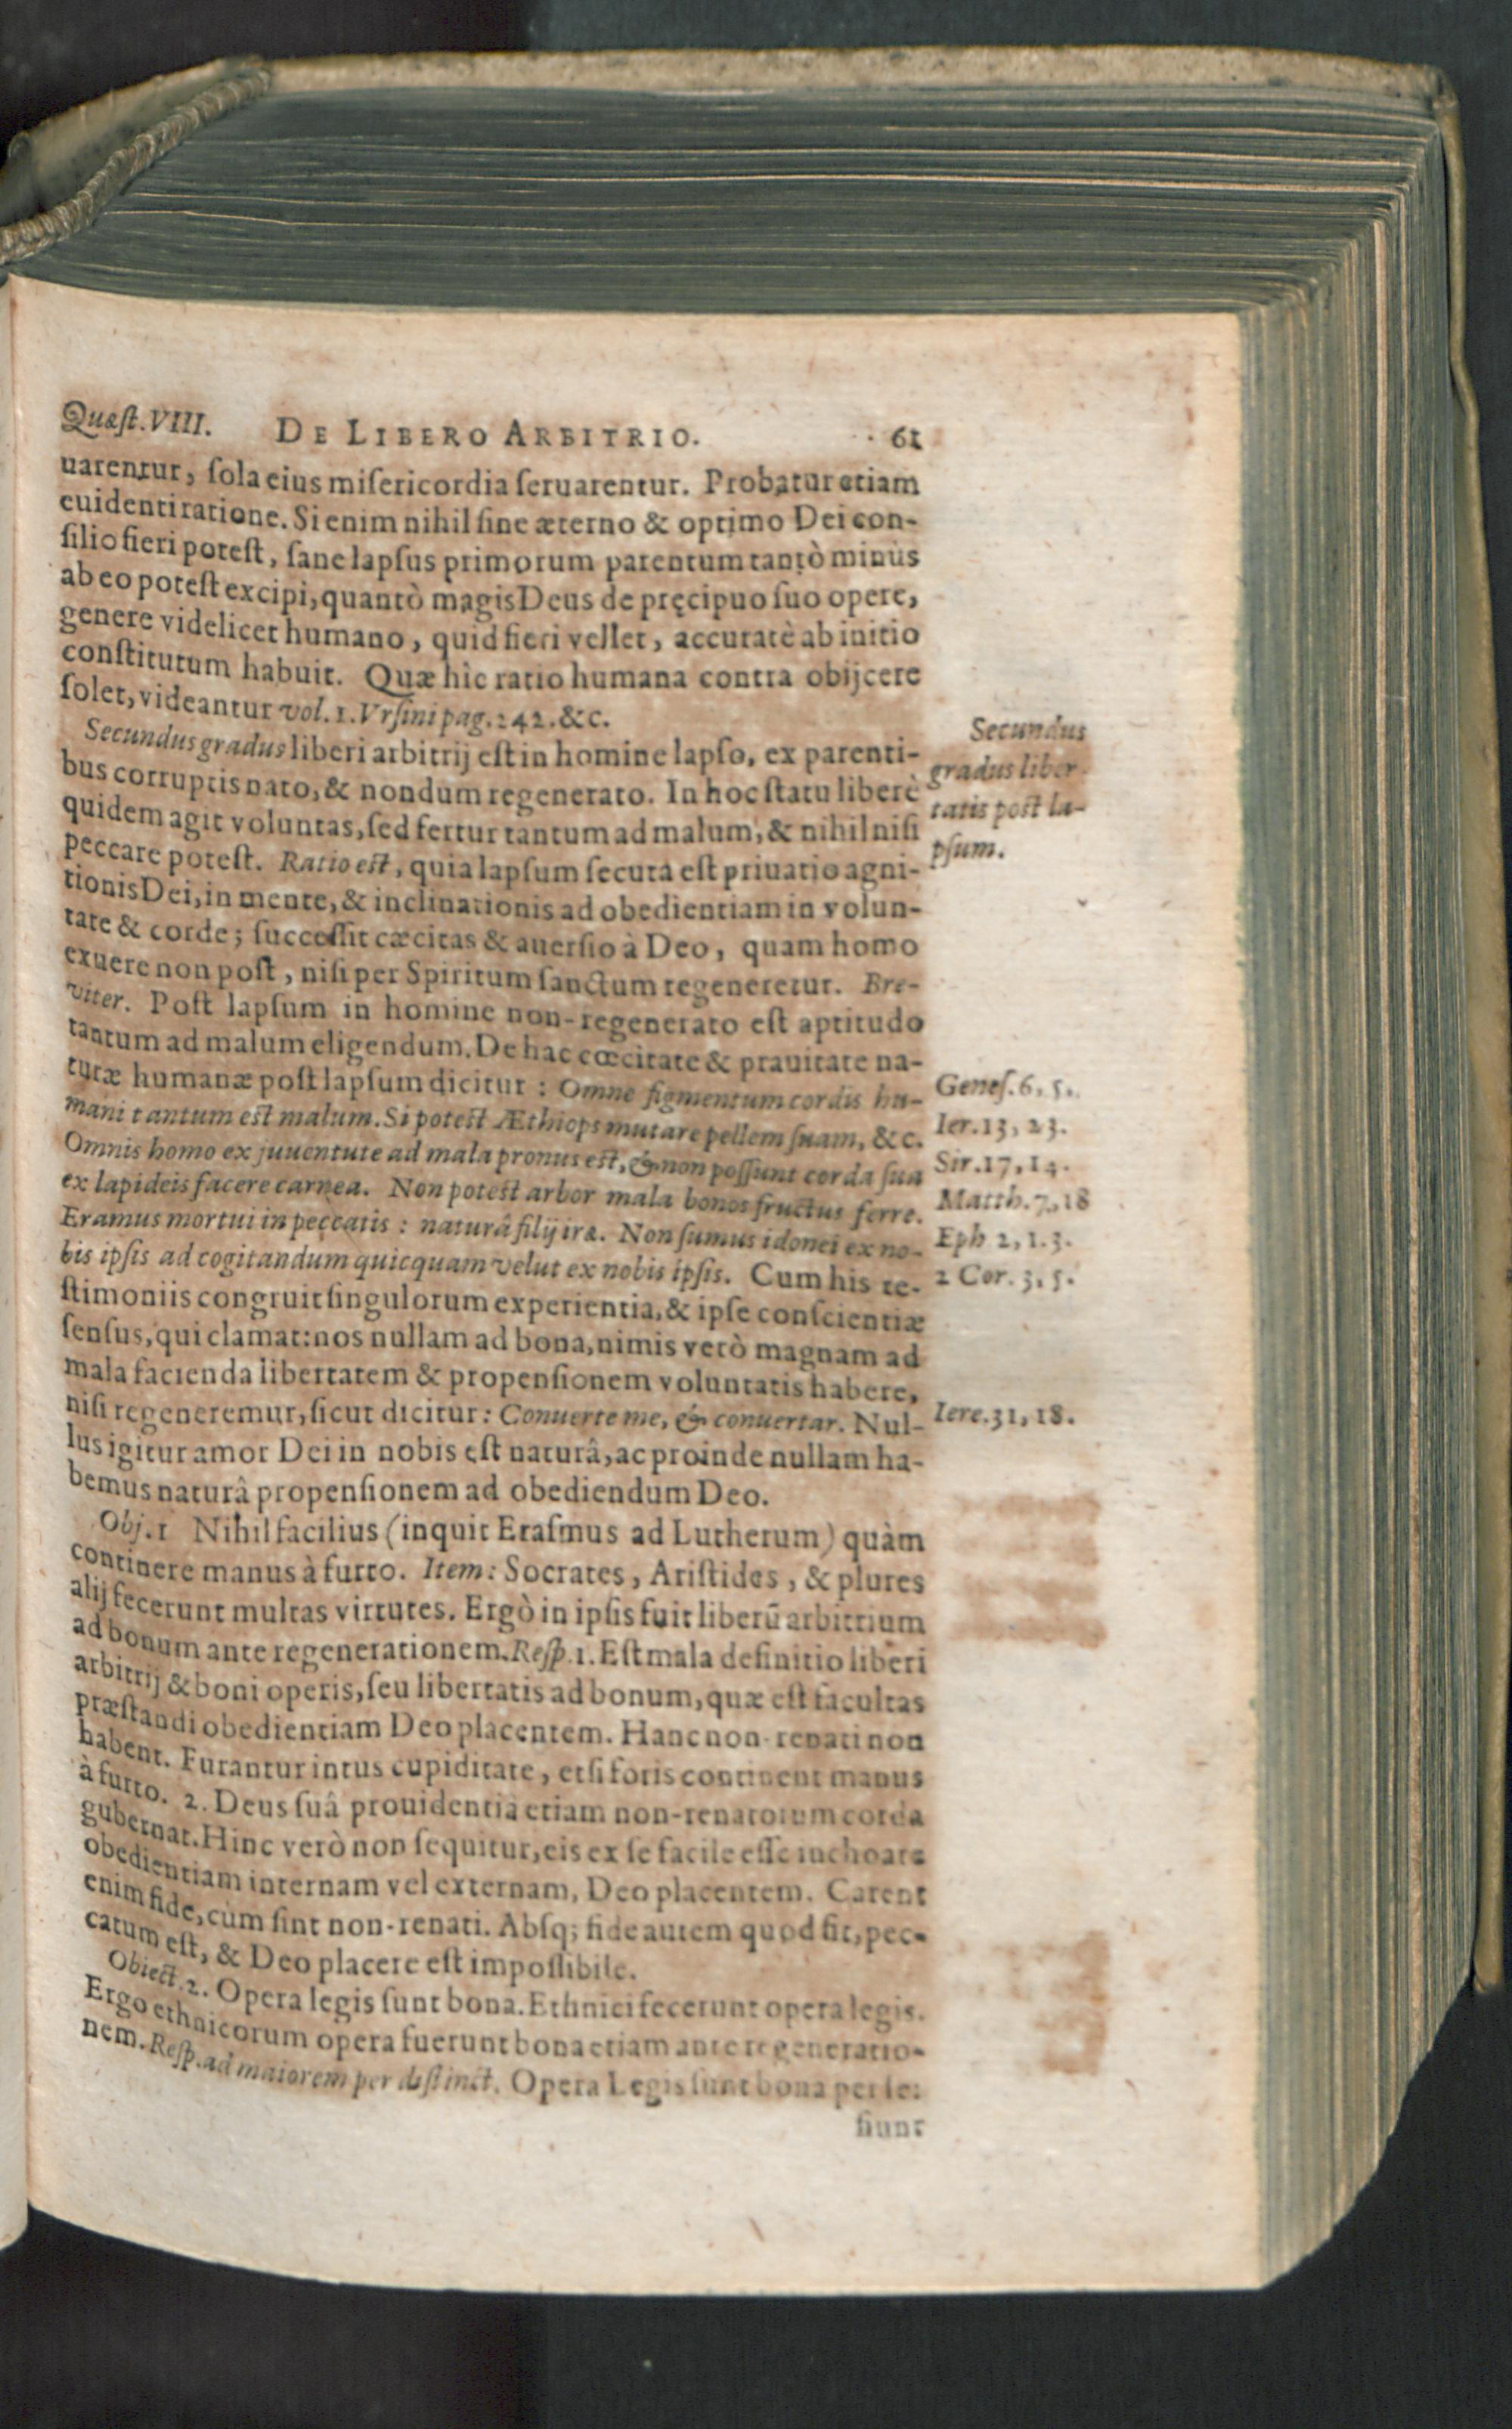 Quæst. VIII. DE LIBERO ARBITRIO. 61
uarentur, sola eius misericordia seruarentur. Probatur etiam
euidenti ratione. Si enim nihil sine æterno & optimo Dei con-
silio fieri potest, sane lapsus primorum parentum tantò minùs
ab eo potest excipi, quantò magis Deus de pręcipuo suo opere,
genere videlicet humano, quid fieri vellet, accuratè ab initio
constitutum habuit. Quæ hîc ratio humana contra obijcere
solet, videantur vol. 1. Vrsini pag. 242. &c.
Secundus gradus liberi arbitrij est in homine lapso, ex parenti-
bus corruptis nato, & nondum regenerato. In hoc statu liberè
quidem agit voluntas, sed fertur tantum ad malum, & nihil nisi
peccare potest. Ratio est, quia lapsum secuta est priuatio agni-
tionis Dei, in mente, & inclinationis ad obedientiam in volun-
tate & corde; successit cæcitas & auersio à Deo, quam homo
exuere non post, nisi per Spiritum sanctum regeneretur. Bre-
viter. Post lapsum in homine non-regenerato est aptitudo
tantum ad malum eligendum. De hac cœcitate & prauitate na-
turæ humanæ post lapsum dicitur: Omne figmentum cordis hu-
mani tantum est malum. Si potest Æthiops mutare pellem suam, &c.
Omnis homo ex juuentute ad mala pronus est, & non possunt corda sua
ex lapideis facere carnea. Non potest arbor mala bonos fructus ferre.
Eramus mortui in peccatis: naturâ filij iræ. Non sumus idonei ex no-
bis ipsis ad cogitandum quicquam velut ex nobis ipsis. Cum his te-
stimoniis congruit singulorum experientia, & ipse conscientiæ
sensus, qui clamat: nos nullam ad bona, nimis verò magnam ad
mala facienda libertatem & propensionem voluntatis habere,
nisi regeneremur, sicut dicitur: Conuerte me, & conuertar. Nul-
lus igitur amor Dei in nobis est naturâ, ac proinde nullam ha-
bemus naturâ propensionem ad obediendum Deo.
Obj. 1 Nihil facilius (inquit Erasmus ad Lutherum) quàm
continere manus à furto. Item: Socrates, Aristides, & plures
alij fecerunt multas virtutes. Ergò in ipsis fuit liberū arbitrium
ad bonum ante regenerationem. Resp. 1. Est mala definitio liberi
arbitrij & boni operis, seu libertatis ad bonum, quæ est facultas
præstandi obedientiam Deo placentem. Hanc non-renati non
habent. Furantur intus cupiditate, etsi foris continent manus
à furto. 2. Deus suâ prouidentia etiam non-renatorum corda
gubernat. Hinc verò non sequitur, eis ex se facile esse inchoare
obedientiam internam vel externam, Deo placentem. Carent
enim fide, cùm sint non-renati. Absq; fide autem quod fit, pec-
catum est, & Deo placere est impossibile.
Obiect. 2. Opera legis sunt bona. Ethnici fecerunt opera legis.
Ergo ethnicorum opera fuerunt bona etiam ante regeneratio-
nem. Resp. ad maiorem per distinct. Opera Legis sunt bona per se:
fiunt
Secundus
gradus liber-
tatis post la-
psum.
Genes. 6, 5.
Ier. 13, 23.
Sir. 17, 14.
Matth. 7, 18
Eph 2, 1. 3.
2 Cor. 3, 5.
Iere. 31, 18.